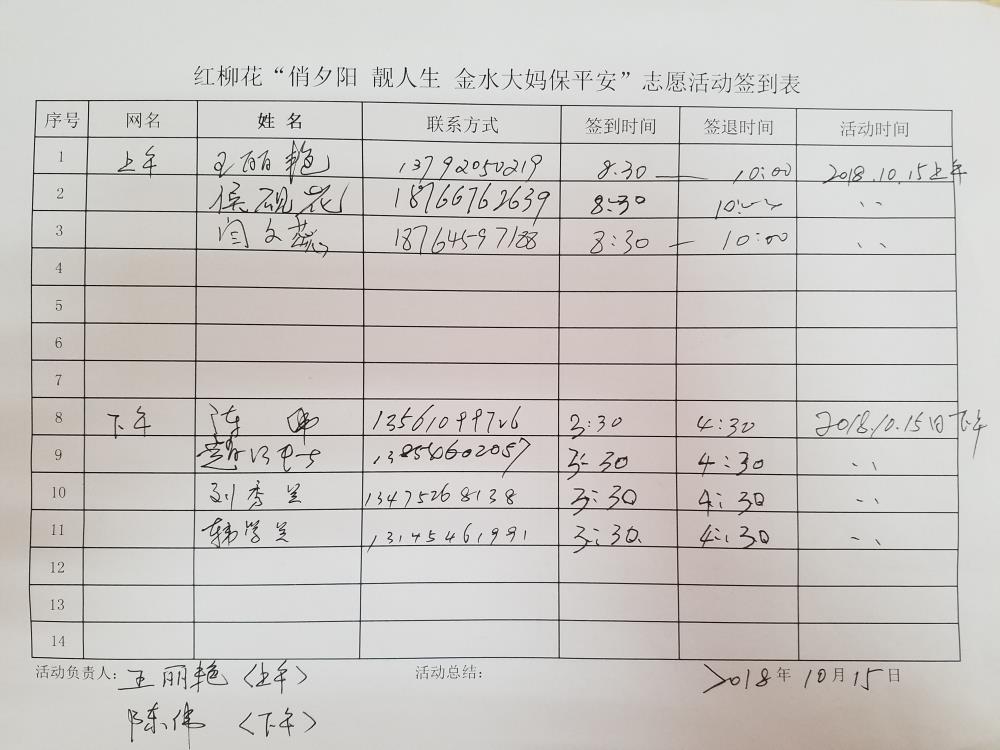 红柳花“俏夕阳 靓人生 金水大妈保平安”志愿活动签到表
序号 网名 姓名 联系方式 签到时间 签退时间 活动时间
1 上午 王丽艳 13792050219 8:30 — 10:00 2018.10.15上午
2 侯砚花 18766762639 8:30 10:00 、、
3 闫文 18764597188 8:30 — 10:00 、、
4
5
6
7
8 下午 陈伟 13561099726 3:30 4:30 2018.10.15日下午
9 13854602057 3:30 4:30 、、
10 刘秀兰 13475268138 3:30 4:30 、、
11 韩学兰 13145461991 3:30 4:30 、、
12
13
14
活动负责人: 王丽艳(上午) 活动总结: 2018年10月15日
陈伟(下午)